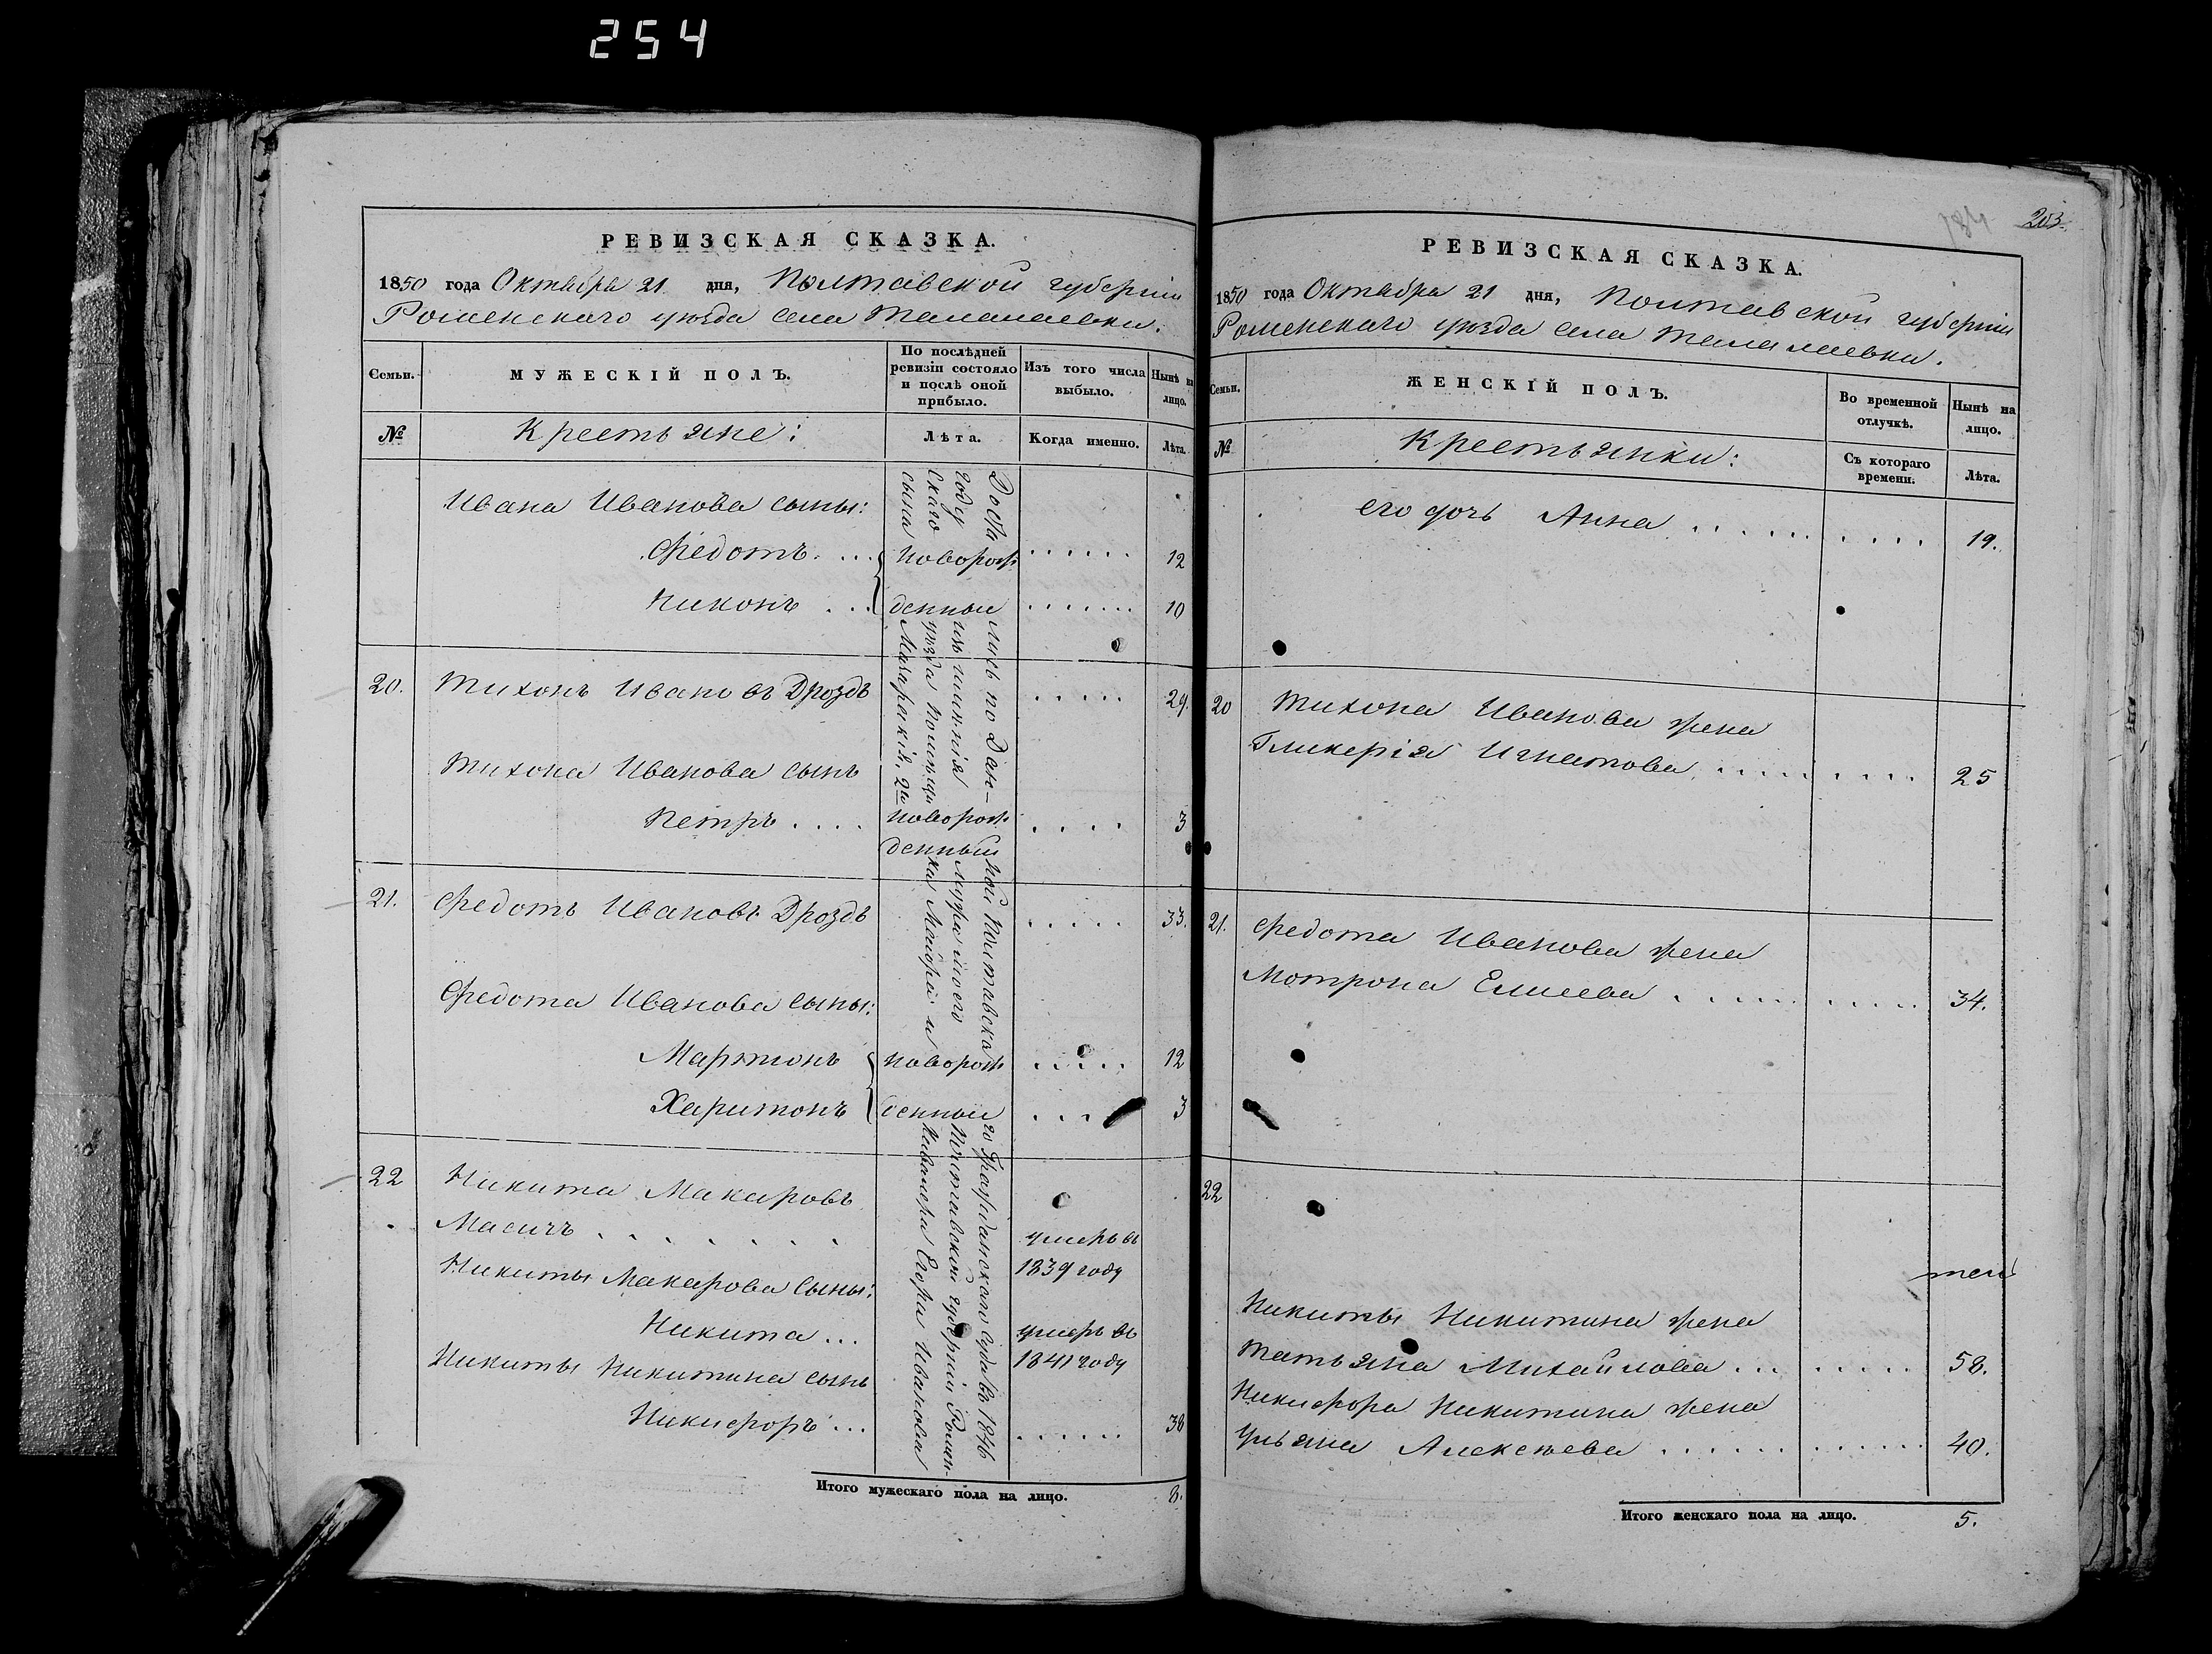 254
РЕВИЗСКАЯ СКАЗКА.
1850 года Октября 21 дня, Полтавской губернии
Роменскаго уезда села Талалаевки.
Семьи.
МУЖЕСКІЙ ПОЛЪ.
По послѣдней ревизіи состояло и послѣ оной прибыло.
Изъ того числа выбыло.
Нынѣ на лицо.
№
Крестьяне:
Лѣта.
Когда именно.
Лѣта.
Ивана Иванова сыны:
Федотъ . . . новорож- . . . . . . 12
Никонъ . . . денныи . . . . . . . 10
20. Тихонъ Ивановъ Дроздъ . . . . . 29.
Тихона Иванова сынъ
Петръ . . . . новорож- . . . . 3
денный
21. Федотъ Ивановъ Дроздъ . . . . . 33.
Федота Иванова сыны:
новорож- . . . . . 12
Харитонъ денныи . . . 3
22 Никита Макаровъ
Масичъ . . . . . . . умеръ въ
1839 году
Никиты Макарова сыны:
Никита . . . умеръ въ
1841 году
Никиты Никитина сынъ
Никифоръ . . . . . . . . . 38
по
Полтавска
го Гражданскаго суда въ 1846
году
имѣнія
моего
Полтавской губерніи Ромен-
скаго
уѣзда
Маіора и
Кавалера Егора Иванова
сына Макаракія, 2й
Итого мужескаго пола на лицо. 8.
203.
РЕВИЗСКАЯ СКАЗКА.
1850 года Октября 21 дня, Полтавской губерніи
Роменскаго уѣзда села Талалаевки.
Семьи.
ЖЕНСКІЙ ПОЛЪ.
Во временной отлучкѣ.
Нынѣ на лицо.
№
Крестьянки:
Съ котораго времени.
Лѣта.
его дочь Анна . . . . . . . . . . 19.
20 Тихона Иванова жена
Гликерія Игнатова . . . . . . . . 25
21. Федота Иванова жена
Мотрона Елисеева . . . . . . . . . 34.
22
Никиты Никитина жена
Татьяна Михайлова . . . . . . . . 58.
Никифора Никитина жена
Ульяна Алексѣева . . . . . . . . . . 40.
Итого женскаго пола на лицо. 5.